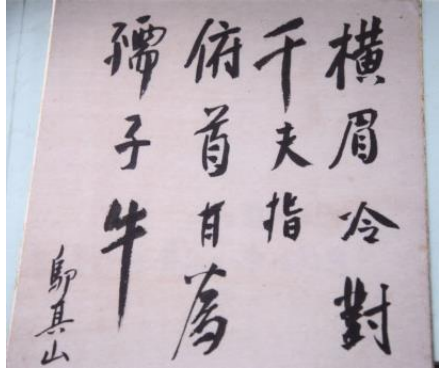 橫眉冷對
千夫指
俯首甘為
孺子牛
鄔其山